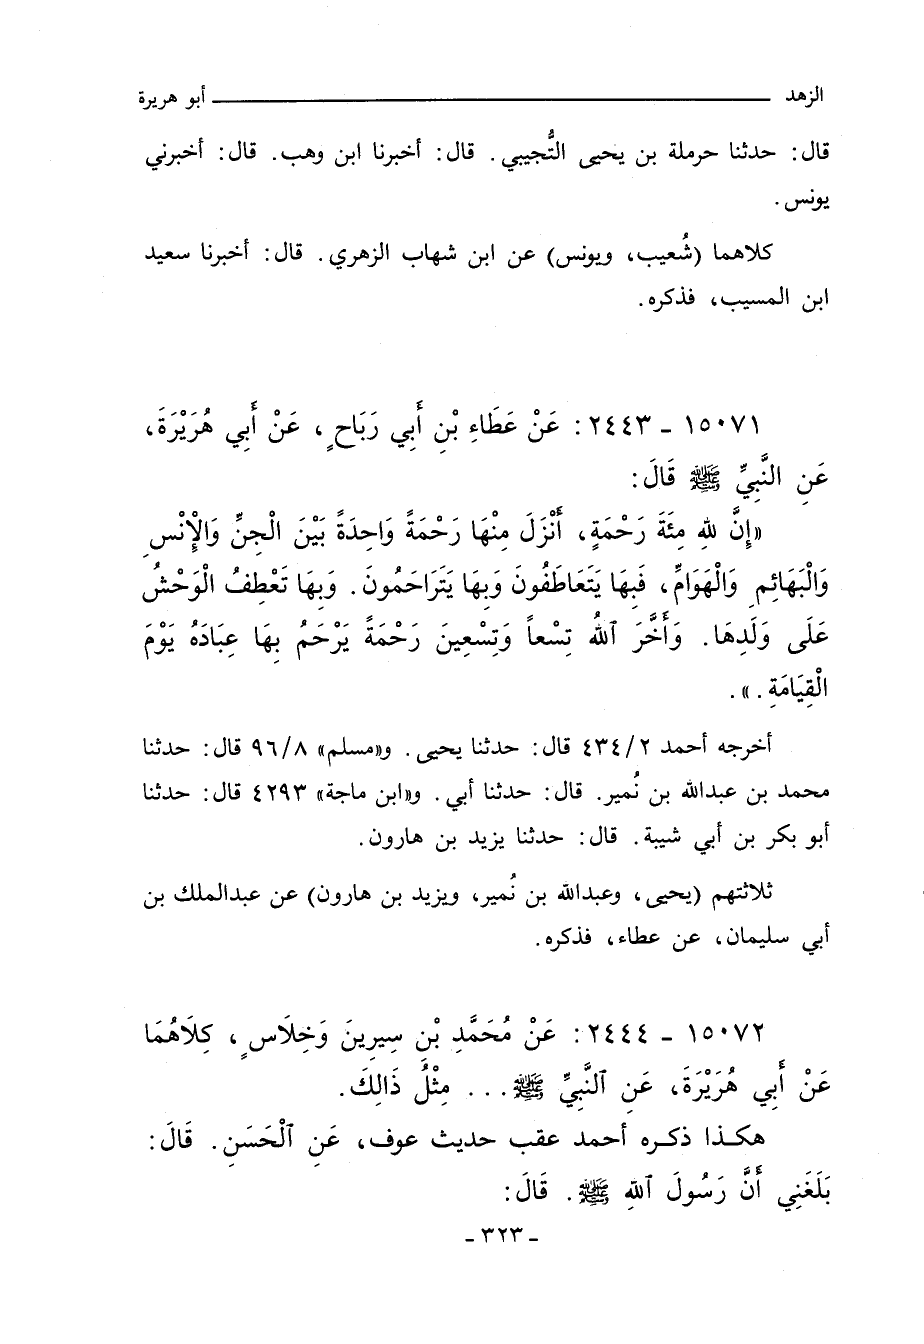 الزهد ــــــــــــــــــــــــــــــــــــــــ أبو هريرة
قال: حدثنا حرملة بن يحيى التُّجيبي. قال: أخبرنا ابن وهب. قال: أخبرني
يونس.
كلاهما (شُعيب، ويونس) عن ابن شهاب الزهري. قال: أخبرنا سعيد
ابن المسيب، فذكره.
١٥٠٧١ ـ ٢٤٤٣: عَنْ عَطَاءِ بْنِ أَبِي رَبَاحٍ، عَنْ أَبِي هُرَيْرَةَ،
عَنِ النَّبِيِّ ﷺ قَالَ:
«إِنَّ لِلهِ مِئَةَ رَحْمَةٍ، أَنْزَلَ مِنْهَا رَحْمَةً وَاحِدَةً بَيْنَ الْجِنِّ وَالْإِنْسِ
وَالْبَهَائِمِ وَالْهَوَامِّ، فَبِهَا يَتَعَاطَفُونَ وَبِهَا يَتَرَاحَمُونَ. وَبِهَا تَعْطِفُ الْوَحْشُ
عَلَى وَلَدِهَا. وَأَخَّرَ ٱللهُ تِسْعاً وَتِسْعِينَ رَحْمَةً يَرْحَمُ بِهَا عِبَادَهُ يَوْمَ
الْقِيَامَةِ.».
أخرجه أحمد ٤٣٤/٢ قال: حدثنا يحيى. و«مسلم» ٩٦/٨ قال: حدثنا
محمد بن عبدالله بن نُمير. قال: حدثنا أبي. و«ابن ماجة» ٤٢٩٣ قال: حدثنا
أبو بكر بن أبي شيبة. قال: حدثنا يزيد بن هارون.
ثلاثتهم (يحيى، وعبدالله بن نُمير، ويزيد بن هارون) عن عبدالملك بن
أبي سليمان، عن عطاء، فذكره.
١٥٠٧٢ ـ ٢٤٤٤: عَنْ مُحَمَّدِ بْنِ سِيرِينَ وَخِلَاسٍ، كِلَاهُمَا
عَنْ أَبِي هُرَيْرَةَ، عَنِ ٱلنَّبِيِّ ﷺ... مِثْلُ ذَالِكَ.
هكـذا ذكـره أحمد عقب حديث عوف، عَنِ ٱلْحَسَنِ. قَالَ:
بَلَغَنِي أَنَّ رَسُولَ ٱللهِ ﷺ. قَالَ:
ـ ٣٢٣ ـ